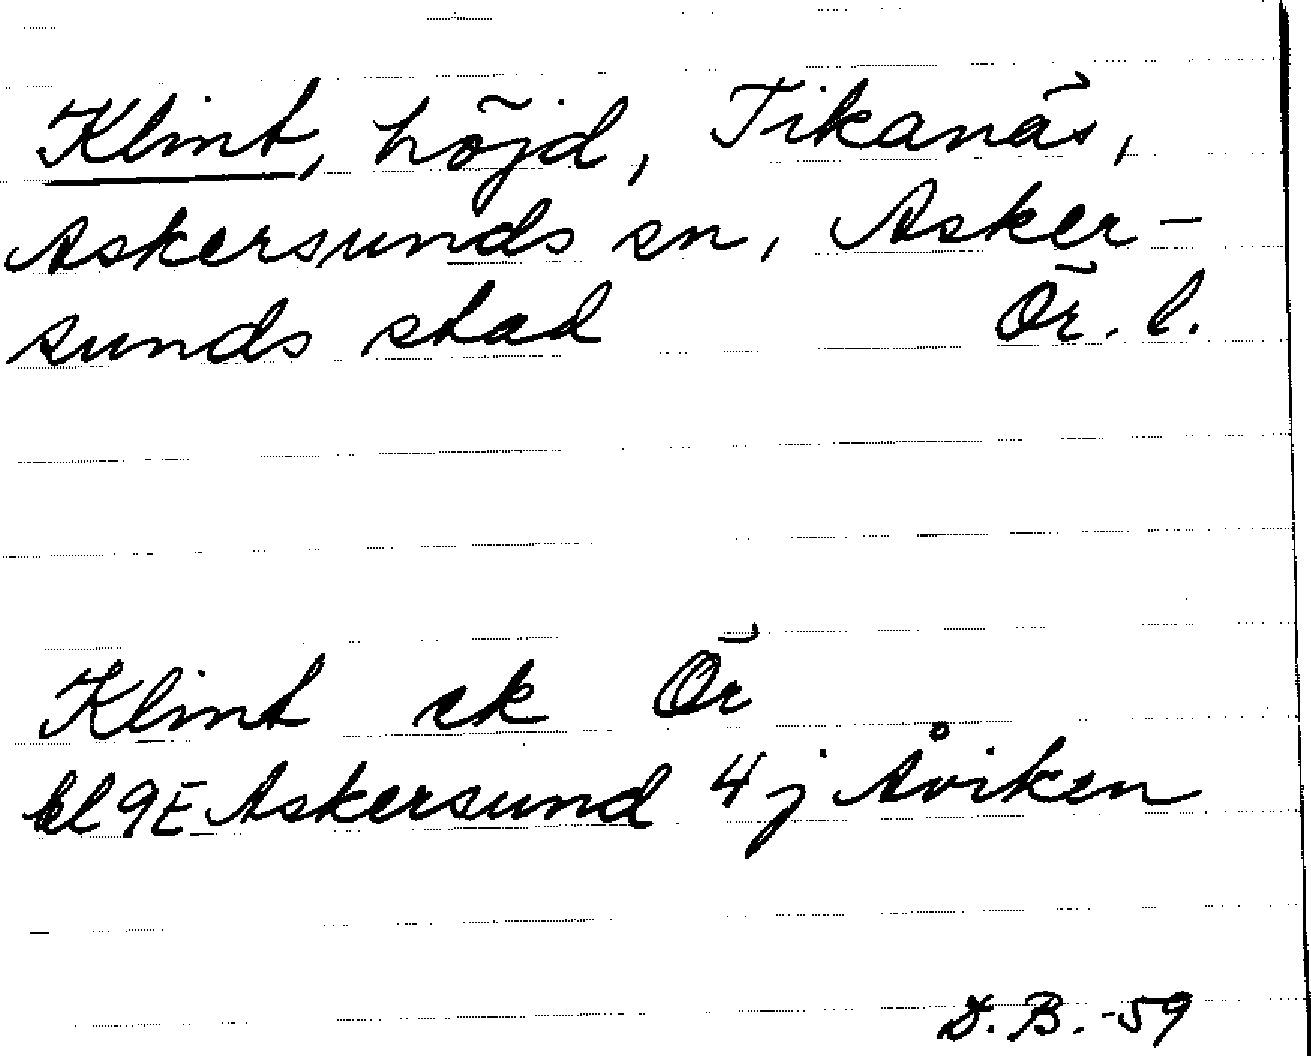 Klint, höjd, Tikanäs,
Askersunds sn, Asker-
sunds stad Ör. l.
Klint ek Ör
bl 9E Askersund 4 j Åviken
D. B. -59